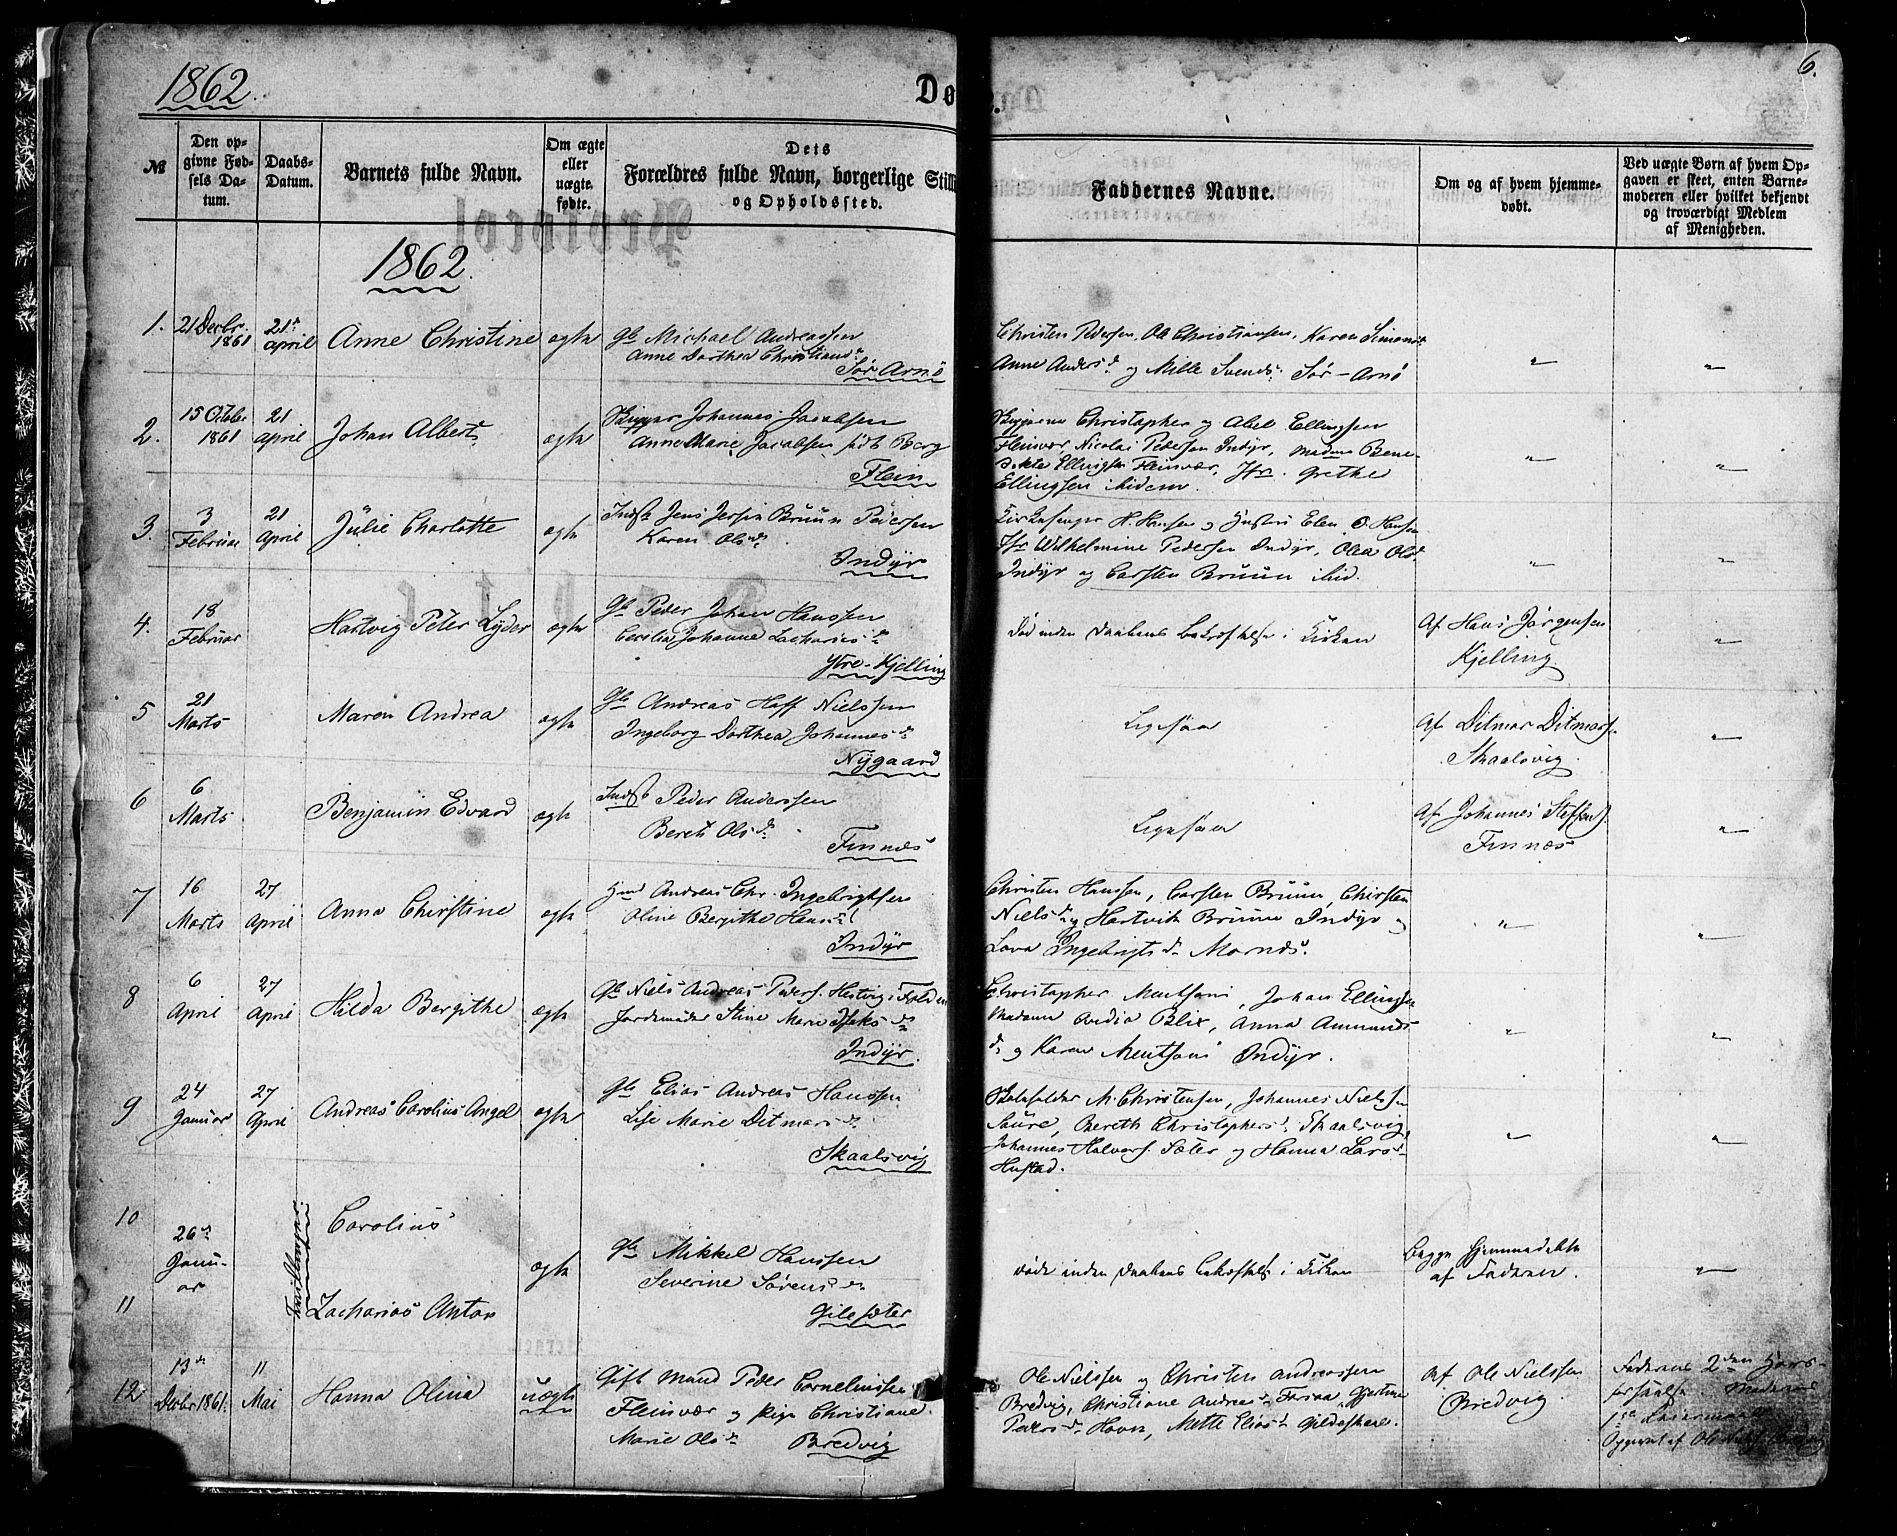 1862.
Dø
6.
№
Den op-
givne Fød-
sels Da-
tum.
Daabs-
Datum.
Barnets fulde Navn.
Om ægte
eller
uægte
fødte.
Dets
Forældres fulde Navn, borgerlige Stilli
og Opholdssted.
Faddernes Navne.
Om og af hvem hjemme-
døbt.
Ved uægte Børn af hvem Op-
gaven er skeet, enten Barne-
moderen eller hvilket bekjendt
og troværdigt Medlem
af Menigheden.
1862.
1.
21 Decbr.
1861
21de
april
Anne Christine
ægte
Gb Michael Andreassen
Anne Dorthea Christiansdr
Sør Arnø
Christen Pedersen, Ole Christiansen, Karen Simonsd
Anne Andersd og Mille Svendsd Sør-Arnø
"
"
2.
15 Octobr
1861
21
April
Johan Albert
ægte
Skipper Johannes Jacobsen
Anne Marie Jacobsen født Berg
Flein
Skipperne Christopher og Abel Ellingsen
Fleinvær, Nicolai Pedersen Indyr, Madme Bene-
dikte Ellingsen Fleinvær, Jfr. Grethe
Ellingsen ibidem.
"
"
3.
3
Februar
21
April
Julie Charlotte
ægte
Indst Jens Jersin Bruun Pedersen
Karen Olsdr
Indyr
Kirkesanger H. Hansen og Hustru Elen O. Hansen
Jfr Wilhelmine Pedersen Indyr, Olea Olsd
Indyr og Carsten Bruun ibid.
"
"
4.
18
Februar
Hartvig Peter Lyder
ægte
Gb Peder Johan Hanssen
Cecilia Johanna Zachariasdr
Ytre-Kjelling
Død inden Daabens Bekræftelse i Kirken
Af Hans Jørgensen
Kjelling
"
5
21
Marts
Maren Andrea
ægte
Gb Andreas Hoff Nielssen
Ingeborg Dorthea Johannesdr
Nygaard
Ligesaa
Af Ditmar Ditmars.
Skaalsvig.
"
6
6
Marts
Benjamin Edvard
ægte
Indst Peder Anderssen
Bereth Olsdr
Finnæs
Ligesaa
Af Johannes Steffens.
Finnæs
"
7
16
Marts
27
April
Anna Chirstine
ægte
Andreas Chr. Ingebrigtsen
Oline Bergithe Hansd
Indyr
Christen Hanssen, Carsten Bruun, Chirsten
Nielsd og Hartvik Bruun Indyr og
Lova Ingebrigtsd Mornæs.
"
"
8
6
April
27
April
Hilda Bergithe
ægte
Gb Niels Andreas Peders. Hestvig i Folden
Jordemoder Stine Marie Isaksdr
Indyr.
Christopher Mentsoni, Johan Ellingsen
Madame Andia Blix, Anna Amunds
d. og Karen Mentsoni Indyr.
"
"
9
24
Januar
27
April
Andreas Carolius Angel
ægte
Gb Elias Andreas Hanssen
Lise Marie Ditmarsdr
Skaalsvig
Skoleholder M. Christensen, Johannes Nielsen
Saure, Bereth Christophersd Skaalsvig,
Johannes Halvors. Sæter og Hanna Larsd
Hustad.
"
"
10
26de
Janu-
ar
Tvillinger
Carolius
ægte
Gb Mikkel Hanssen
Severine Sørensdr
Gilesæter
døde inden Daabens Bekræftelse i Kirken
Begge hjemmedøbte
af Faderen.
"
11
Zacharias Anton
12
13de
Decbr 1861.
11
Mai
Hanna Olina
uægte
Gift Mand Peder Corneliussen
Fleinvær og pige Christiane
Marie Olsdr Bredvig
Ole Nielssen og Christen Andreassen
Bredvig, Christiane Andreasd Forsaa, Gjertine
Pedersd Havn, Mette Eliasd Gildeskaal.
Af Ole Nielssen
Bredvig
Faderens 2den Hors-
forseelse. Moderens
1ste Leiermaal
Opgivet af Ole Niels. Bredvig